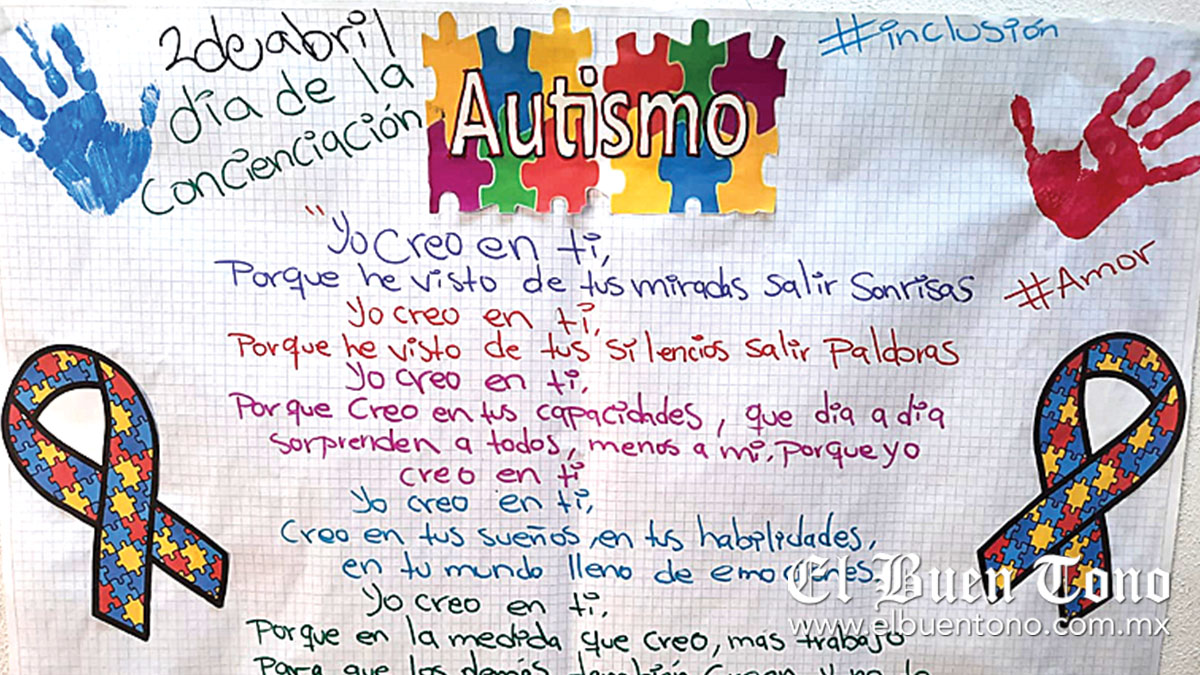 2 de abril
día de la
Concienciación
Autismo
#inclusión
#Amor
"Yo creo en ti,
Porque he visto de tus miradas salir Sonrisas
Yo creo en ti,
Porque he visto de tus silencios salir Palabras
Yo creo en ti,
Porque Creo en tus capacidades, que dia a dia
sorprenden a todos, menos a mi, porque yo
creo en ti
Yo creo en ti,
Creo en tus sueños, en tus habilidades,
en tu mundo lleno de emociones
Yo creo en ti,
Porque en la medida que creo, mas trabajo
Para que los demás también crean y no lo
El Buen Tono
www.elbuentono.com.mx